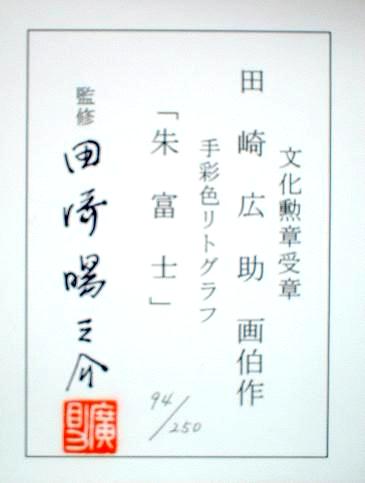 文化勲章受章
田崎広助画伯作
手彩色リトグラフ
「朱富士」
94/250
監修 田崎暘之介